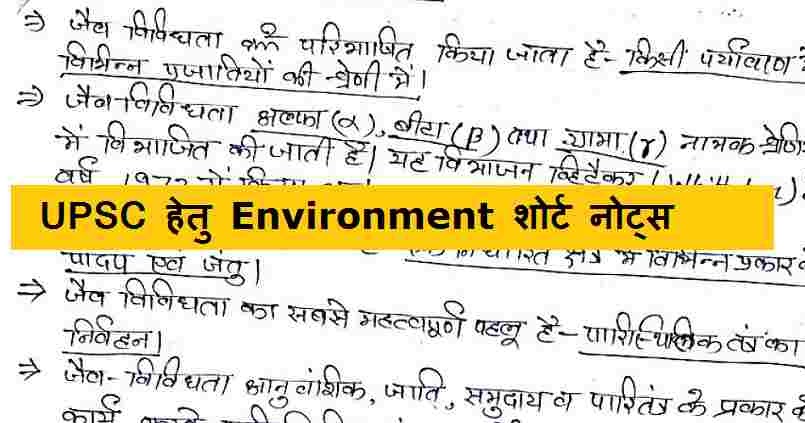 ⇒ जैव विविधता को परिभाषित किया जाता है- किसी पर्यावरण
विभिन्न प्रजातियों की श्रेणी में।
⇒ जैव-विविधता अल्फा (α), बीटा (β) तथा गामा (γ) नामक
में विभाजित की जाती है। यह विभाजन व्हिटेकर
वर्ष
UPSC हेतु Environment शोर्ट नोट्स
विभिन्न प्रकार
पादप एवं जंतु।
⇒ जैव विविधता का सबसे महत्वपूर्ण पहलू है- पारिस्थितिक तंत्र का
निर्वहन।
⇒ जैव-विविधता आनुवांशिक, जाति, समुदाय व पारितंत्र के प्रकार
कार्य